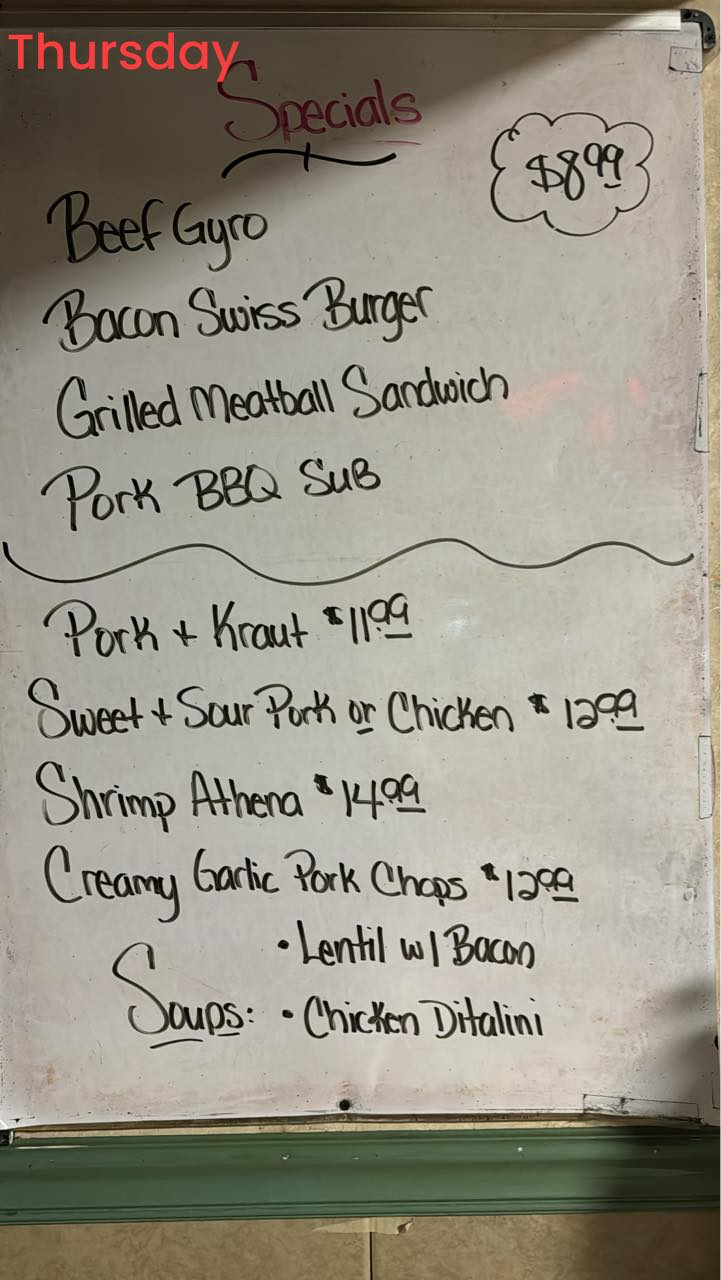 Thursday
Specials
$8.99
Beef Gyro
Bacon Swiss Burger
Grilled Meatball Sandwich
Pork BBQ Sub
Pork + Kraut $11.99
Sweet + Sour Pork or Chicken $12.99
Shrimp Athena $14.99
Creamy Garlic Pork Chops $12.99
Soups:
• Lentil w/ Bacon
• Chicken Ditalini